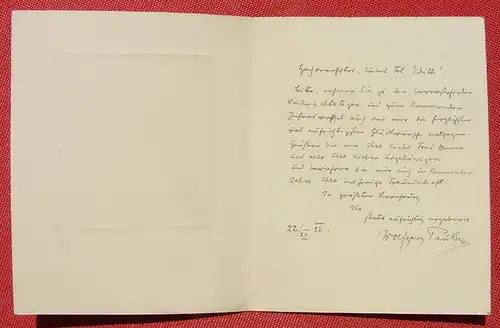 Hochverehrtes, liebes Frl. Edith!
Bitte, nehmen Sie zu den bevorstehenden
Weihnachtstagen und zum kommenden
Jahreswechsel auch von mir die herzlichsten
und aufrichtigsten Glückwünsche entgegen.
Grüßen Sie mir Ihre liebe Frau Mama
und alle Ihre lieben Angehörigen
und bewahren Sie mir auch im kommenden
Jahre Ihre Freundschaft.
In größter Verehrung
Ihr
stets aufrichtig ergebener
22. XII 32.
Wolfgang